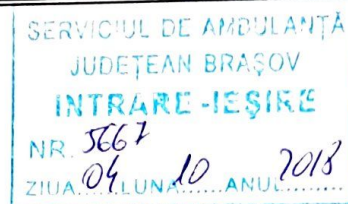 SERVICIUL DE AMBULANȚĂ
JUDEȚEAN BRAȘOV
INTRARE-IEȘIRE
NR. 5667
ZIUA 04 LUNA 10 ANUL 2018